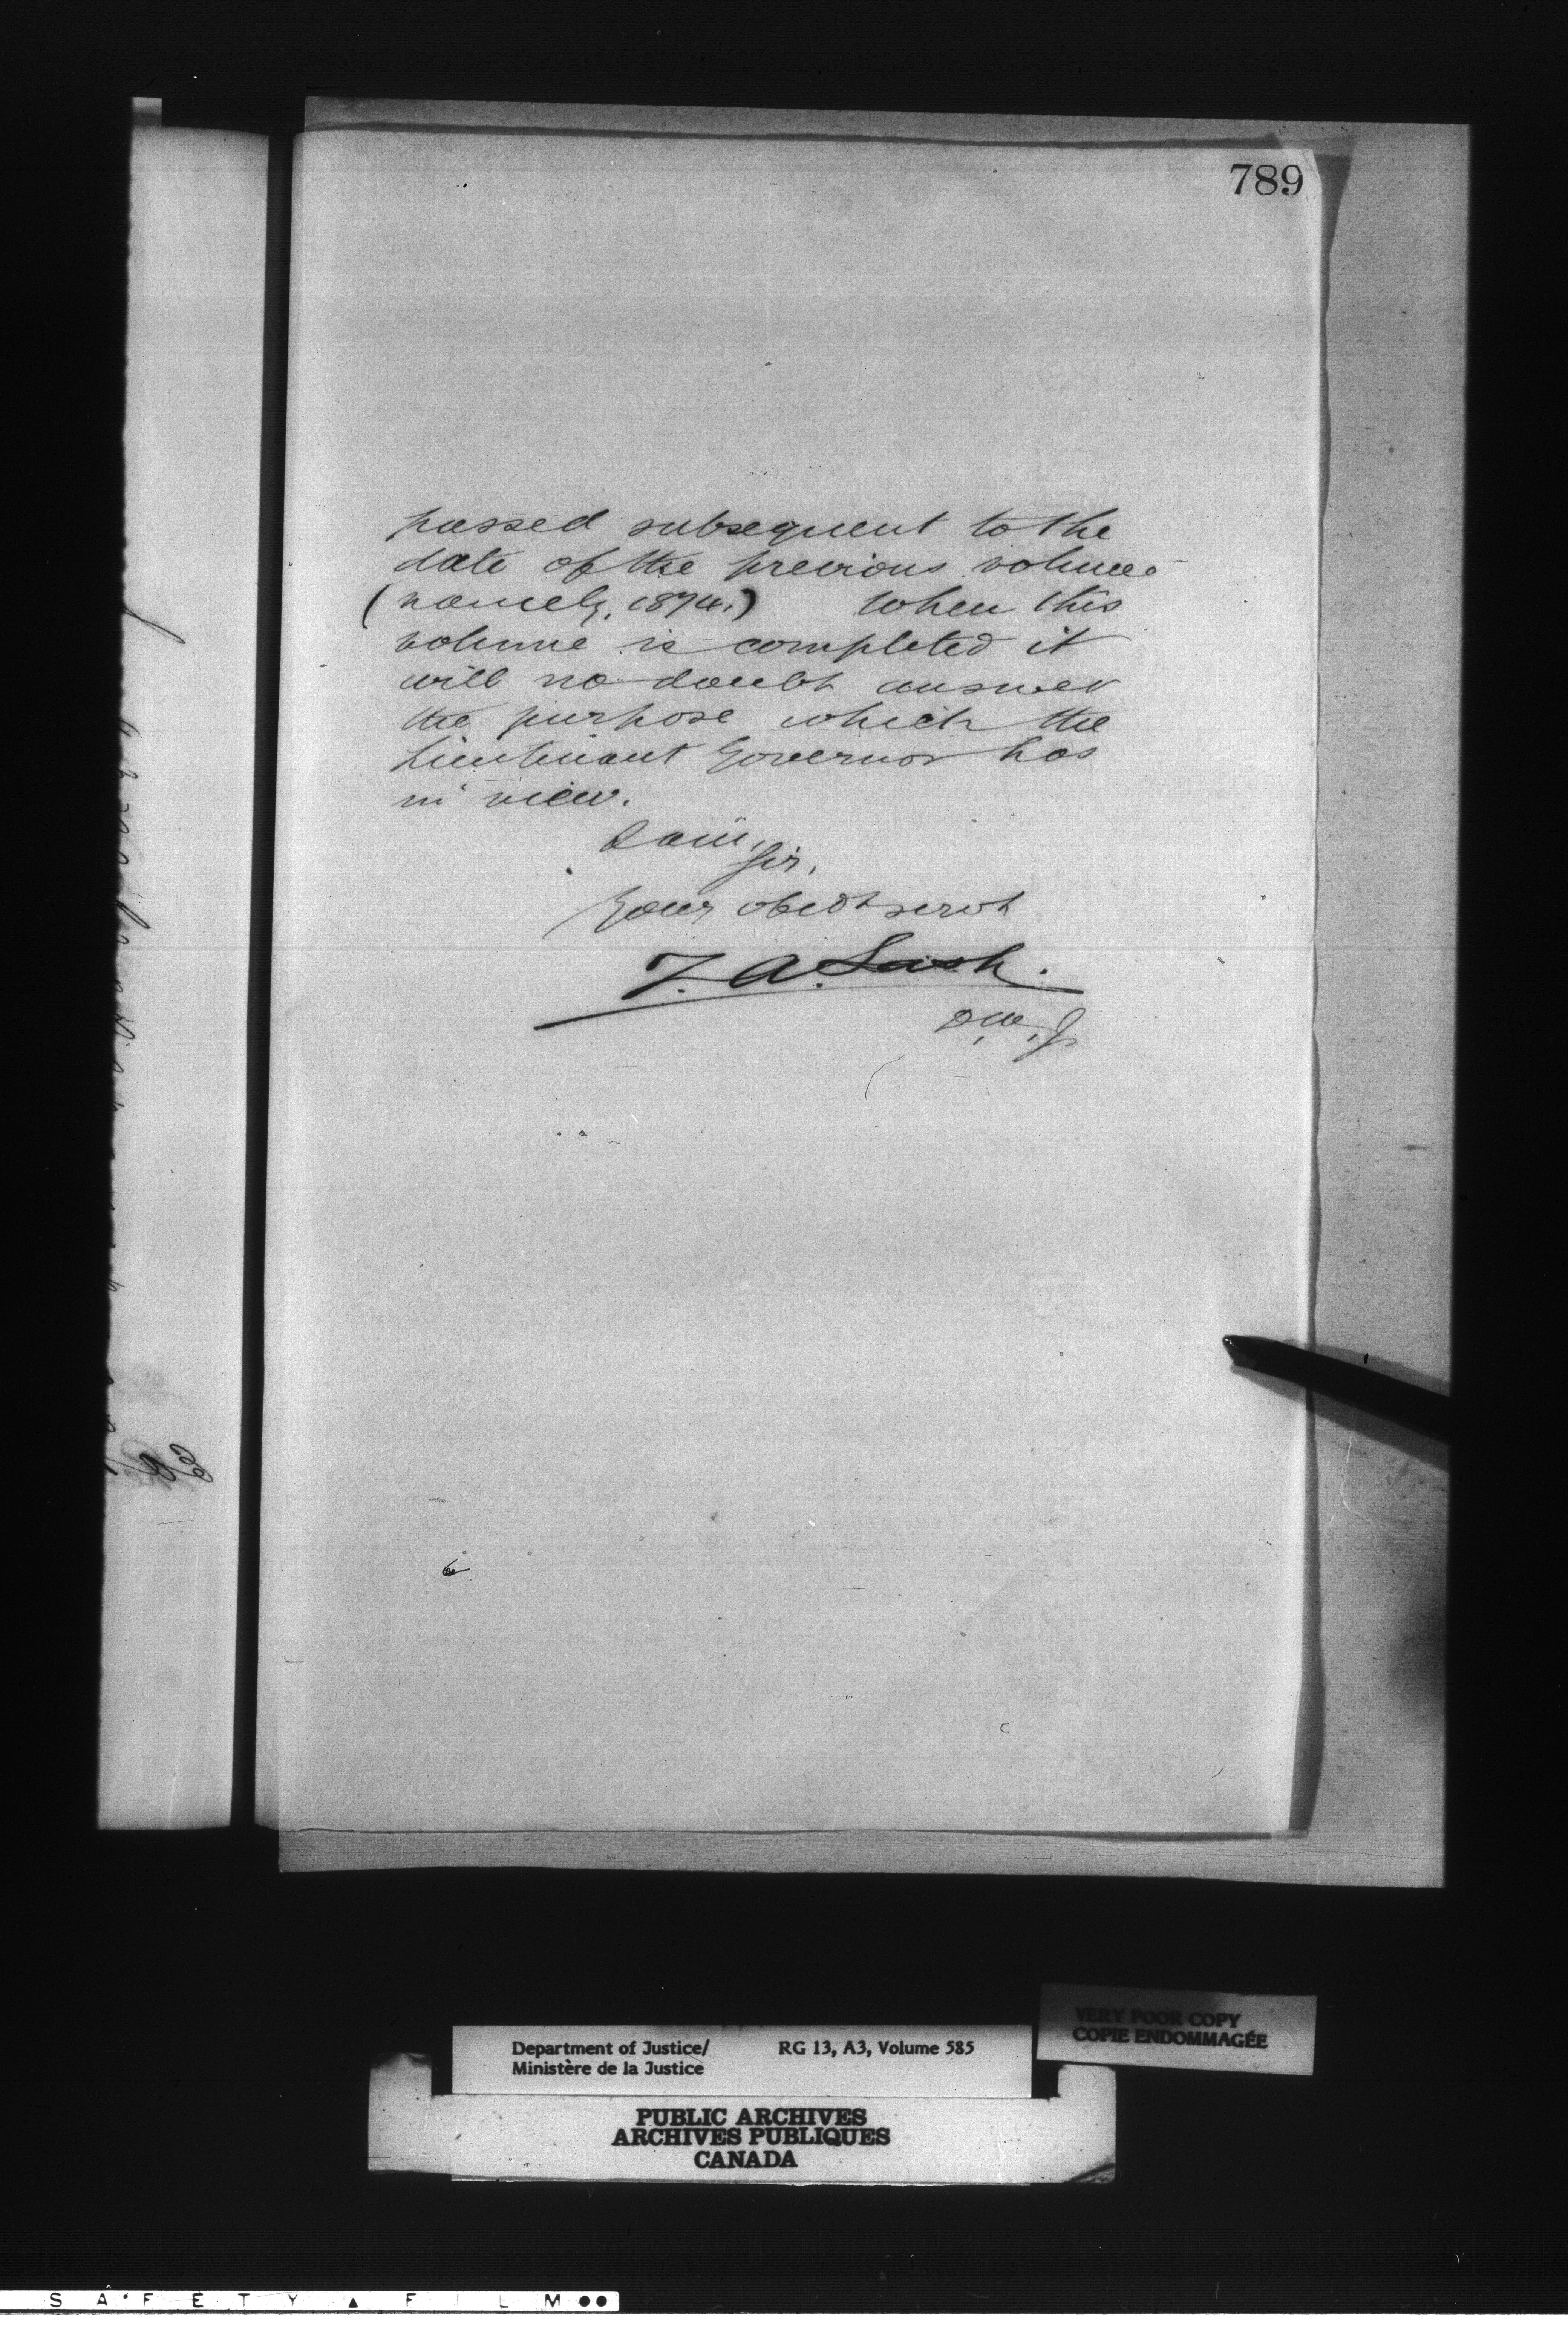 789
passed subsequent to the
date of the previous volume
(namely, 1874.) When this
volume is completed it
will no doubt answer
the purpose which the
Lieutenant Governor has
in view.
I am,
Sir,
Your obedt servt
Z. A. Lash.
D. M. J.
VERY POOR COPY
COPIE ENDOMMAGÉE
Department of Justice/ RG 13, A3, Volume 585
Ministère de la Justice
PUBLIC ARCHIVES
ARCHIVES PUBLIQUES
CANADA
SAFETY FILM